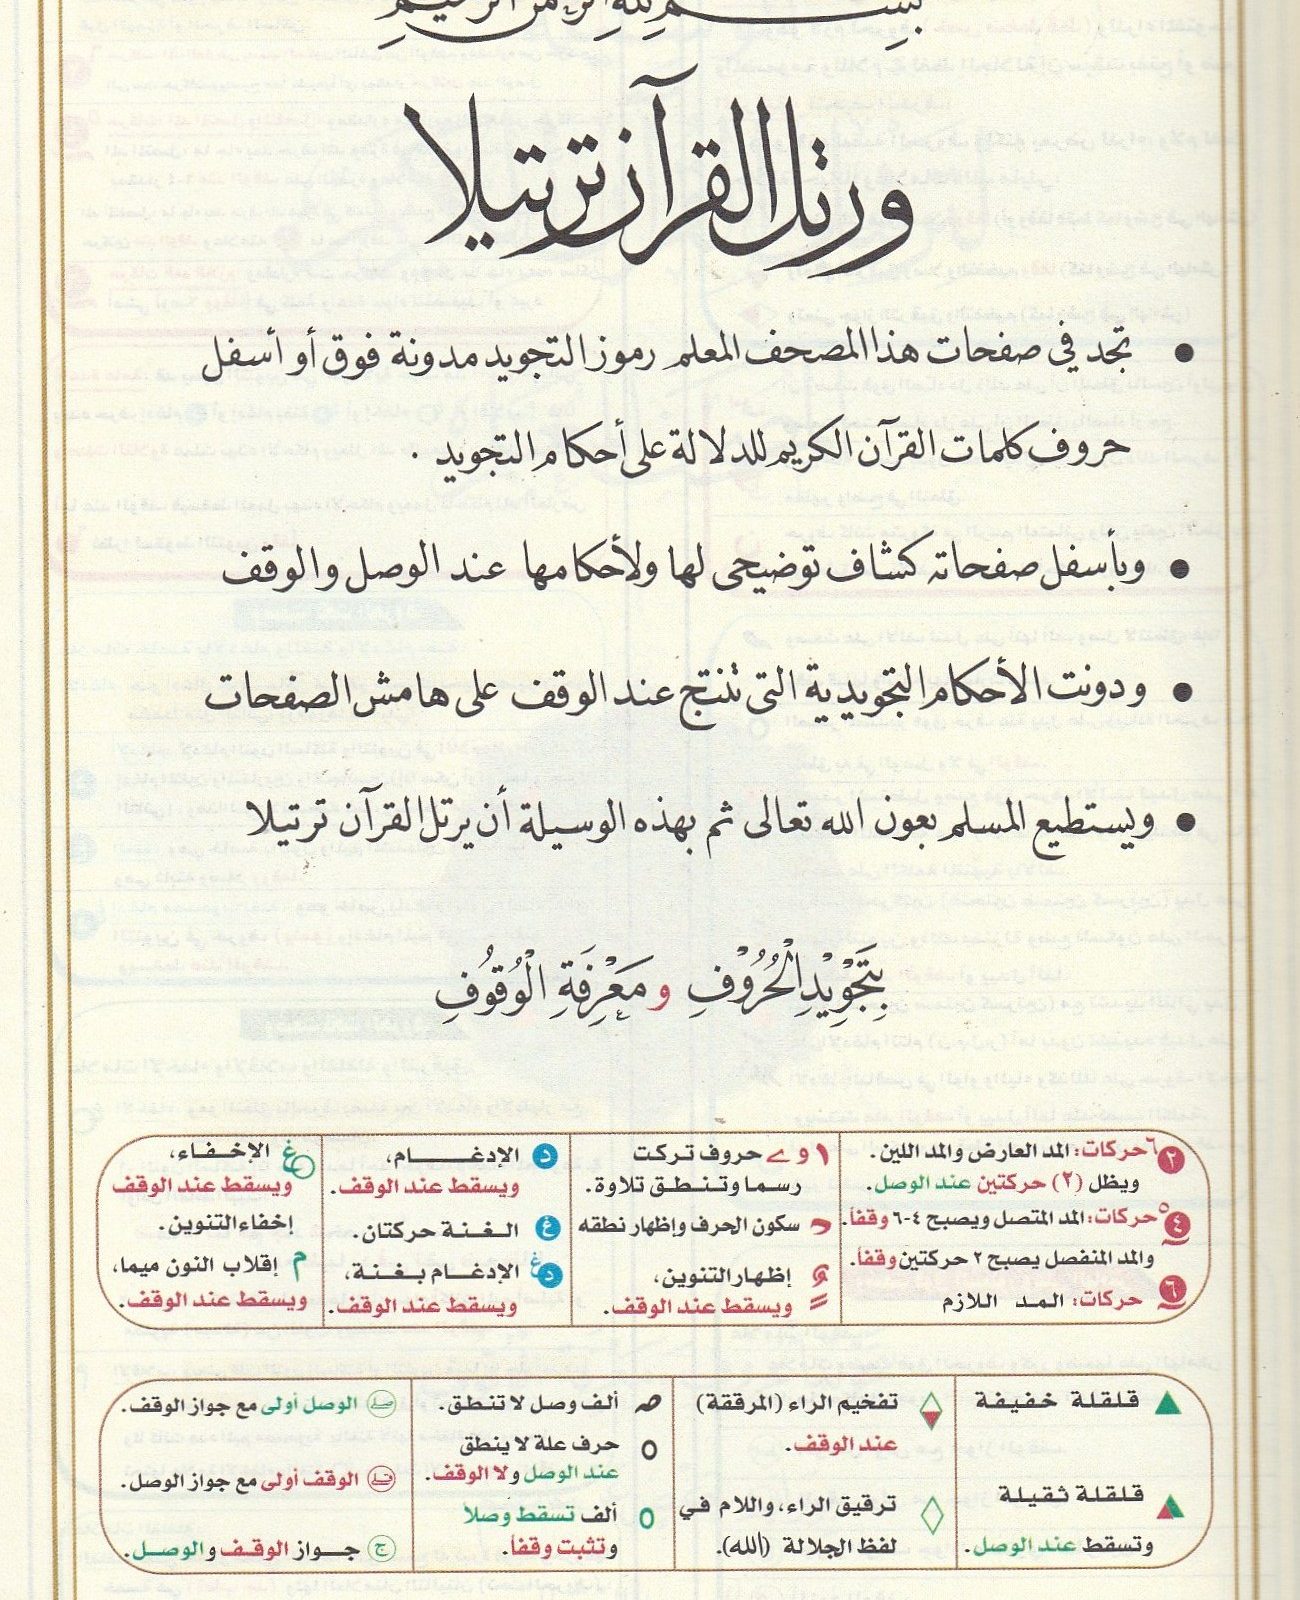 بسم الله الرحمن الرحيم
ورتل القرآن ترتيلا
● تجد في صفحات هذا المصحف المعلم رموز التجويد مدونة فوق أو أسفل
حروف كلمات القرآن الكريم للدلالة على أحكام التجويد .
● وبأسفل صفحاته كشاف توضيحى لها ولأحكامها عند الوصل والوقف
● ودونت الأحكام التجويدية التى تنتج عند الوقف على هامش الصفحات
● ويستطيع المسلم بعون الله تعالى ثم بهذه الوسيلة أن يرتل القرآن ترتيلا
بِتَجْوِيْدِ الْحُرُوْفِ و مَعْرِفَةِ الْوُقُوُفِ
٢ ٦ حركات: المد العارض والمد اللين.
ويظل (٢) حركتين عند الوصل.
٤ ٥ حركات: المد المتصل ويصبح ٤-٦ وقفاً.
والمد المنفصل يصبح ٢ حركتين وقفاً.
٦ حركات: المد اللازم
ا و ے حروف تركت
رسما وتنطق تلاوة.
سكون الحرف وإظهار نطقه
إظهار التنوين،
ويسقط عند الوقف.
د الإدغـــام،
ويسقط عند الوقف.
غ الغنة حركتان.
د غ الإدغام بغنة،
ويسقط عند الوقف.
غ الإخفاء،
ويسقط عند الوقف
إخفاء التنوين.
م إقلاب النون ميما،
ويسقط عند الوقف.
قلقلة خفيفة
قلقلة ثقيلة
وتسقط عند الوصل.
تفخيم الراء (المرققة)
عند الوقف.
ترقيق الراء، واللام في
لفظ الجلالة (الله).
ص ألف وصل لا تنطق.
حرف علة لا ينطق
عند الوصل ولا الوقف.
ألف تسقط وصلاً
وتثبت وقفاً.
صلى الوصل أولى مع جواز الوقف.
قلى الوقف أولى مع جواز الوصل.
ج جـــواز الوقــف والوصــل.